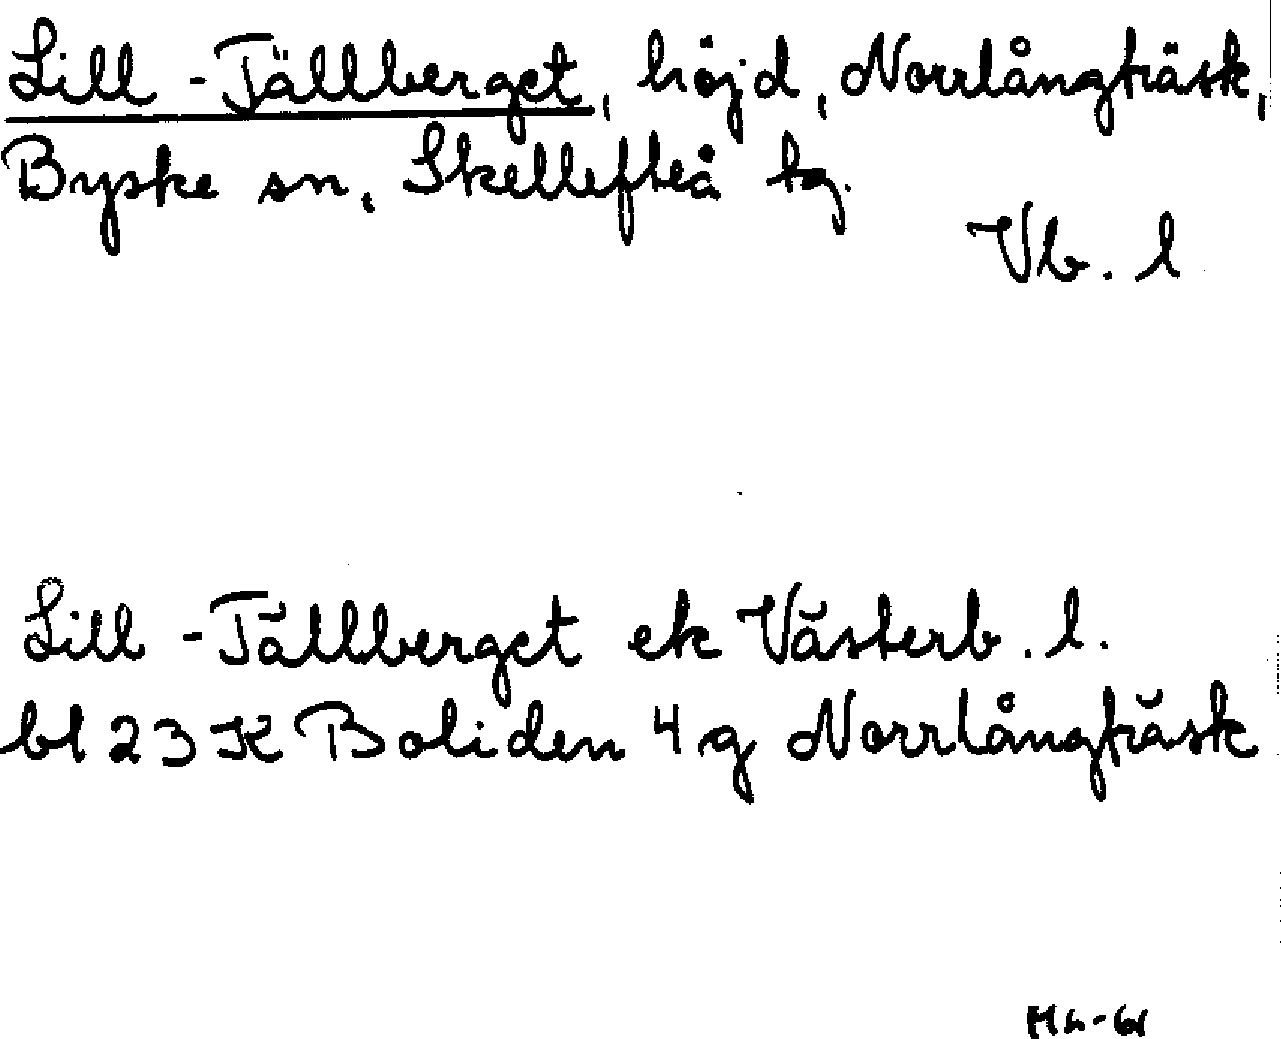 Lill-Tällberget, höjd, Norrlångträsk,
Byske sn, Skellefteå tg.
Vb. l
Lill-Tällberget ek Västerb. l.
bl 23 K Boliden 4 g Norrlångträsk